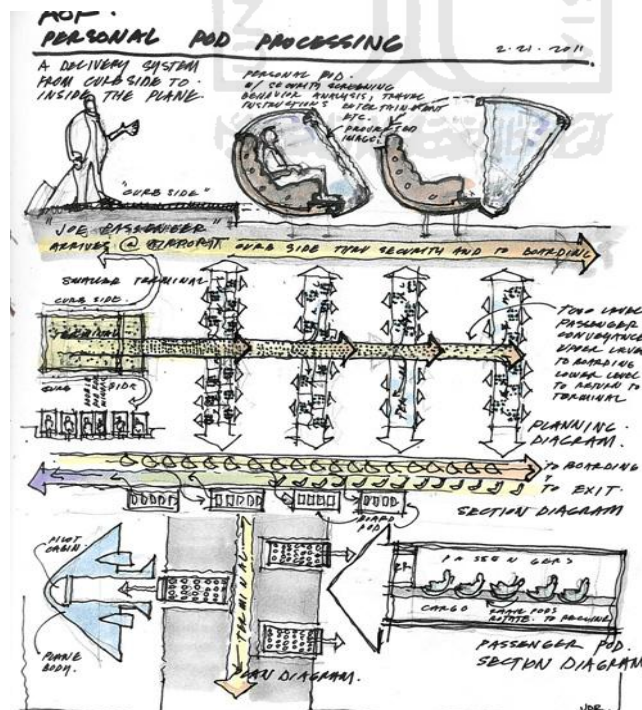 AOF.
PERSONAL POD PROCESSING
2.21.2011
A DELIVERY SYSTEM
FROM CURBSIDE TO
INSIDE THE PLANE.
PERSONAL POD.
W/ SECURITY SCREENING
BEHAVIOR ANALYSIS, TRAVEL
INSTRUCTIONS ENTERTAINMENT
ETC.
PROJECTED
IMAGE.
"CURB SIDE"
"JOE PASSENGER"
ARRIVES @ AIRPORT
CURB SIDE THRU SECURITY AND TO BOARDING
SMALLER TERMINAL
CURB SIDE.
TERMINAL
CURB SIDE
TWO LEVEL
PASSENGER
CONVEYANCE
UPPER LEVEL
TO BOARDING
LOWER LEVEL
TO RETURN TO
TERMINAL
PLANNING
DIAGRAM.
TO BOARDING
TO EXIT.
SECTION DIAGRAM
BOARD
POD
PILOT
CABIN.
PLANE
BODY.
TERMINAL
PLAN DIAGRAM.
PASSENGERS
CARGO
PODS
ROTATE TO RECLINE
PASSENGER POD.
SECTION DIAGRAM